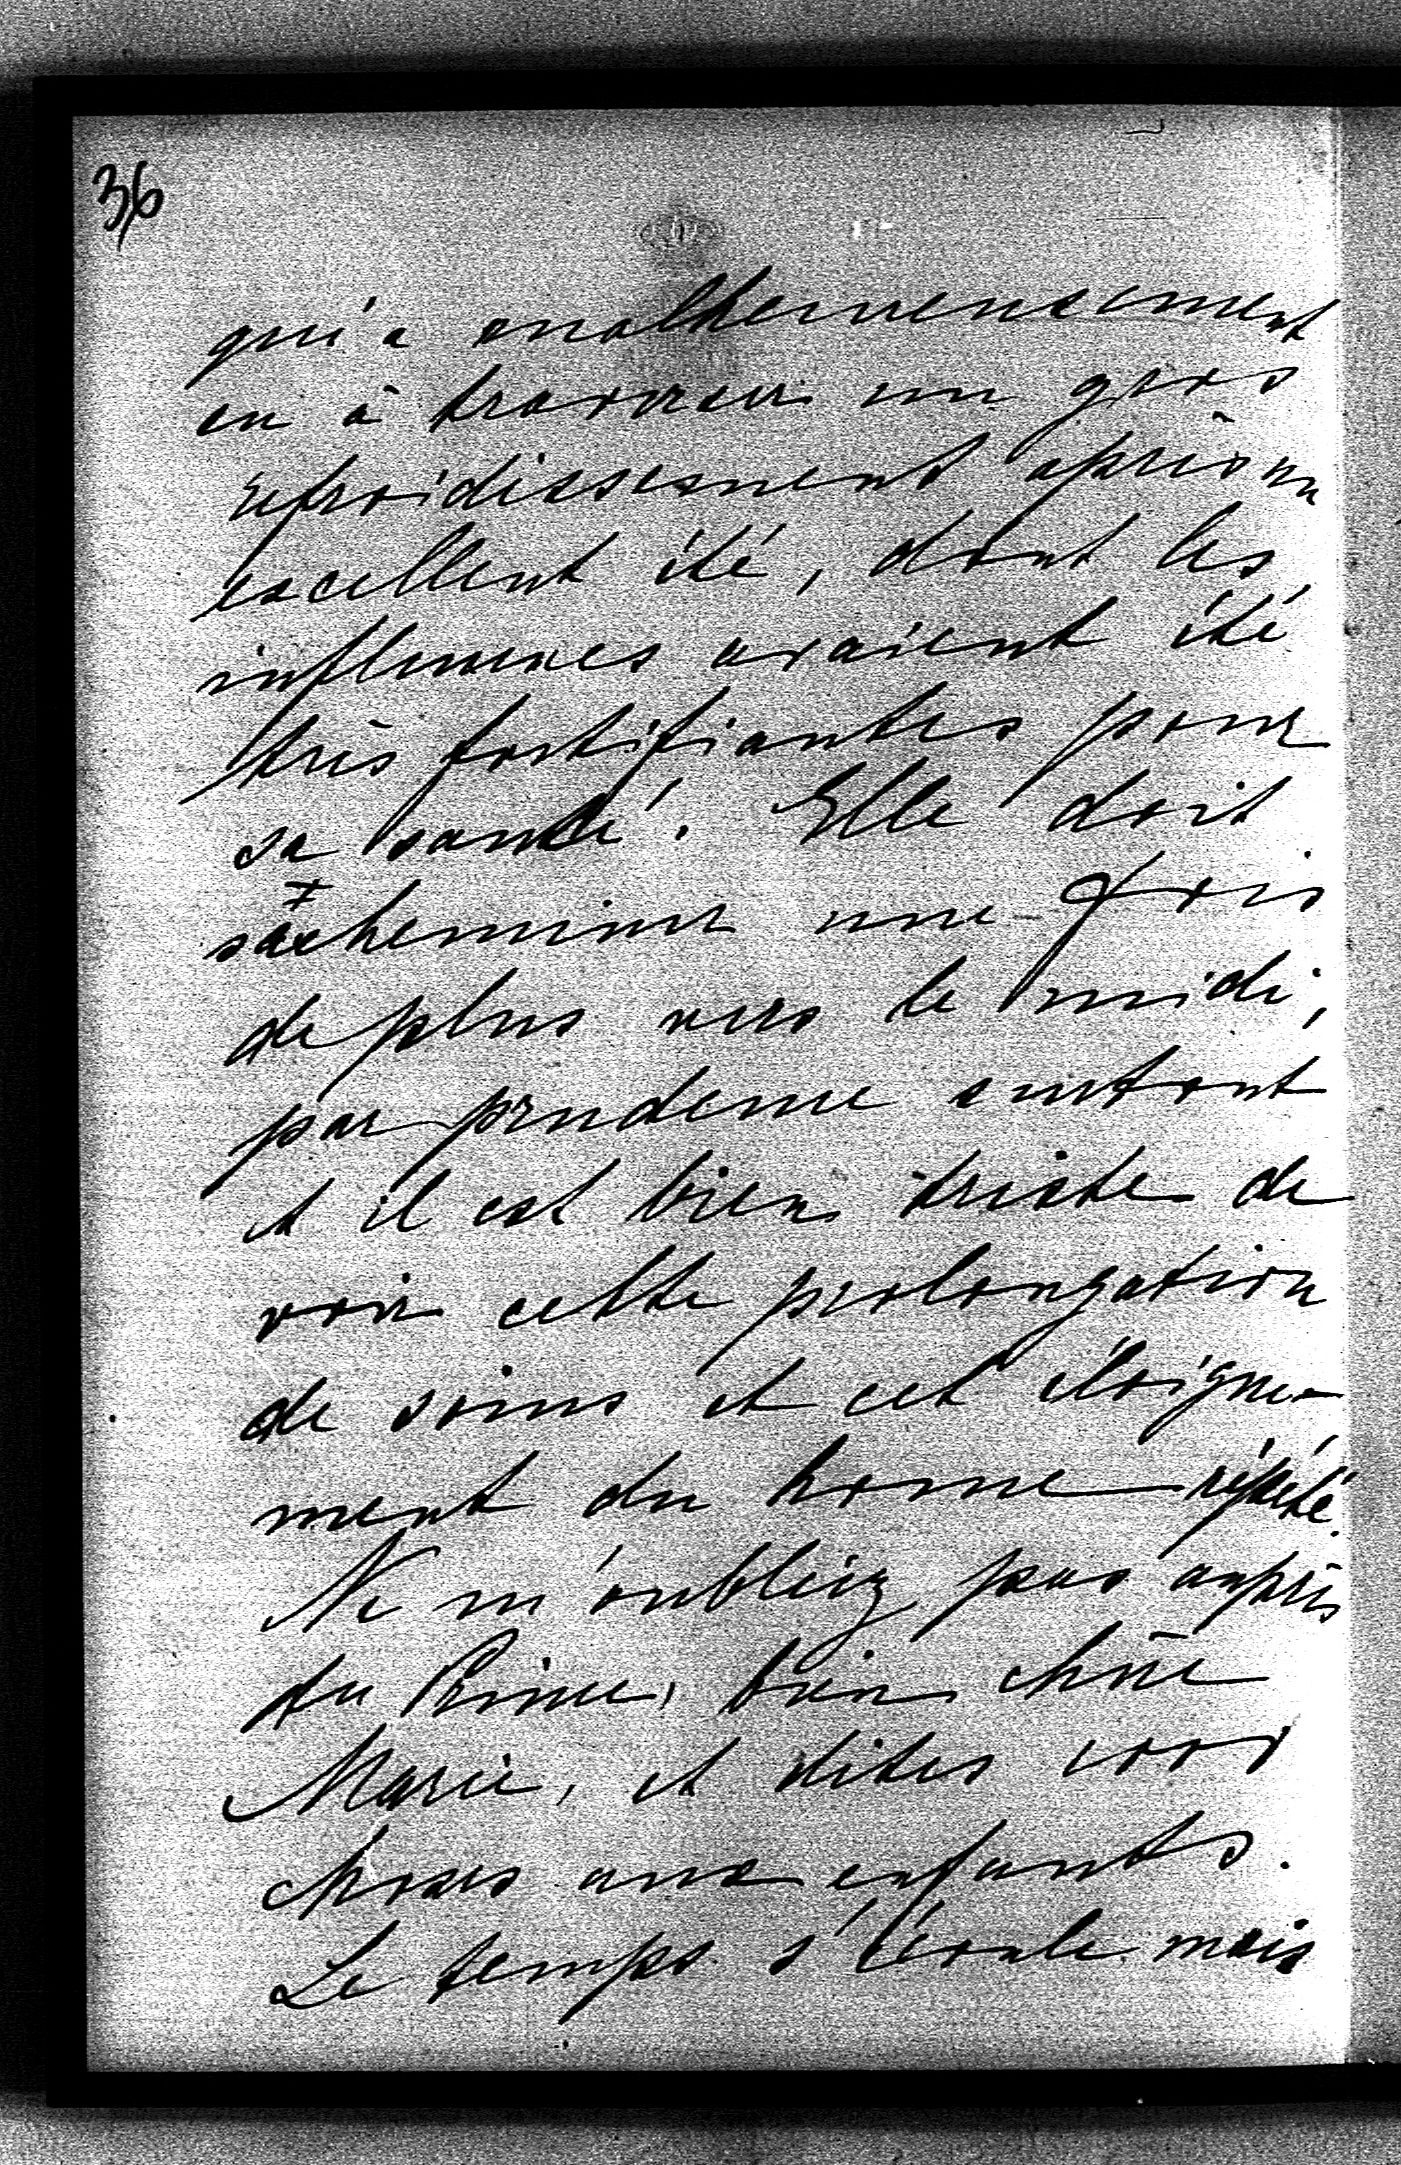 36
qui a malheureusement
eu à traverser un gros
refroidissement après un
excellent été, dont les
influences avaient été
très fortifiantes pour
sa santé. Elle doit
s'acheminer une fois
de plus vers le midi,
par prudence surtout
et il est bien triste de
voir cette prolongation
de soins et cet éloigne-
ment du home répété.
Ne m'oubliez pas auprès
du Prince, bien chère
Marie, et dites
choses aux enfants.
Le temps s'écoule mais